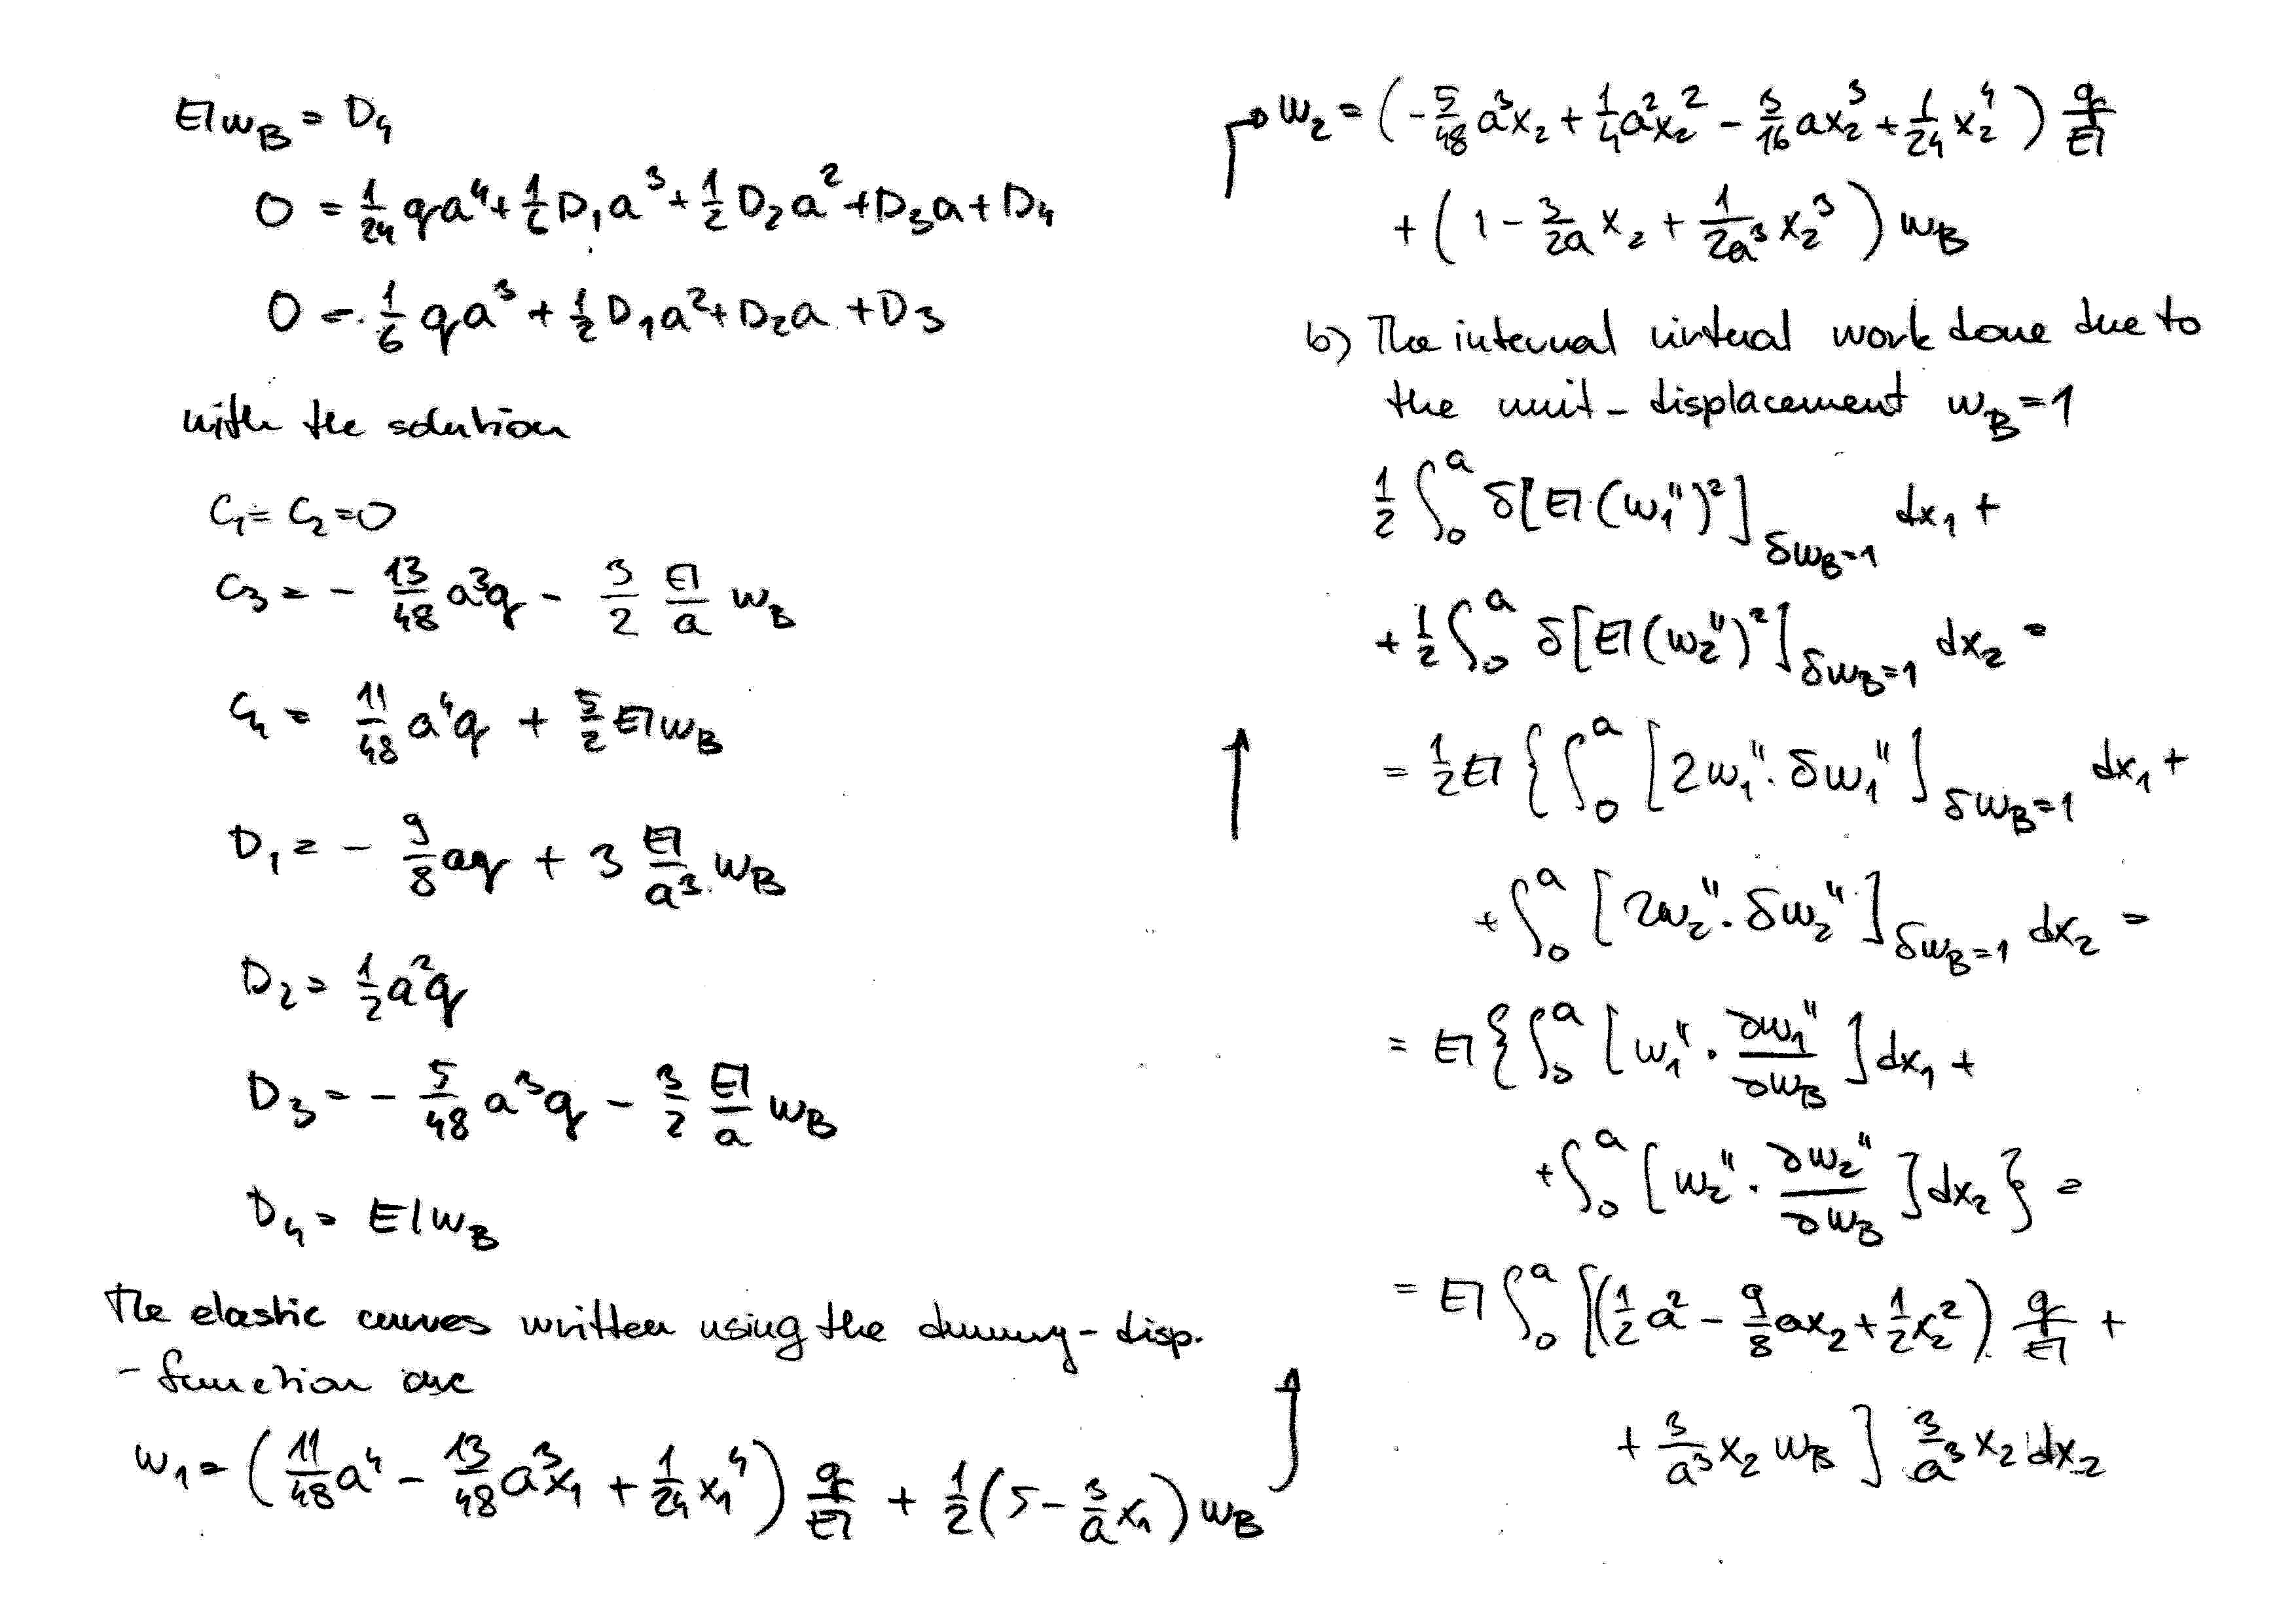 EIw_B = D_4
0 = 1/24 qa^4 + 1/6 D_1a^3 + 1/2 D_2a^2 + D_3a + D_4
0 = 1/6 qa^3 + 1/2 D_1a^2 + D_2a + D_3
with the solution
C_1 = C_2 = 0
C_3 = - 13/48 a^3q - 3/2 EI/a w_B
C_4 = 11/48 a^4q + 5/2 EIw_B
D_1 = - 9/8 aq + 3 EI/a^3 w_B
D_2 = 1/2 a^2q
D_3 = - 5/48 a^3q - 3/2 EI/a w_B
D_4 = EIw_B
The elastic curves written using the dummy-disp.
-function are
w_1 = (11/48 a^4 - 13/48 a^3x_1 + 1/24 x_1^4) q/EI + 1/2 (5 - 3/a x_1) w_B
w_2 = (-5/48 a^3x_2 + 1/4 a^2x_2^2 - 3/16 ax_2^3 + 1/24 x_2^4) q/EI
+ (1 - 3/2a x_2 + 1/2a^3 x_2^3) w_B
b) The internal virtual work done due to
the unit-displacement w_B=1
1/2 ∫_0^a δ[EI(w_1'')^2]_δw_B=1 dx_1 +
+ 1/2 ∫_0^a δ[EI(w_2'')^2]_δw_B=1 dx_2 =
= 1/2 EI { ∫_0^a [2w_1''. δw_1'']_δw_B=1 dx_1 +
+ ∫_0^a [2w_2''. δw_2'']_δw_B=1 dx_2 =
= EI { ∫_0^a [w_1''. ∂w_1''/∂w_B] dx_1 +
+ ∫_0^a [w_2''. ∂w_2''/∂w_B] dx_2 } =
= EI ∫_0^a [(1/2 a^2 - 9/8 ax_2 + 1/2 x_2^2) q/EI +
+ 3/a^3 x_2 w_B ] 3/a^3 x_2 dx_2